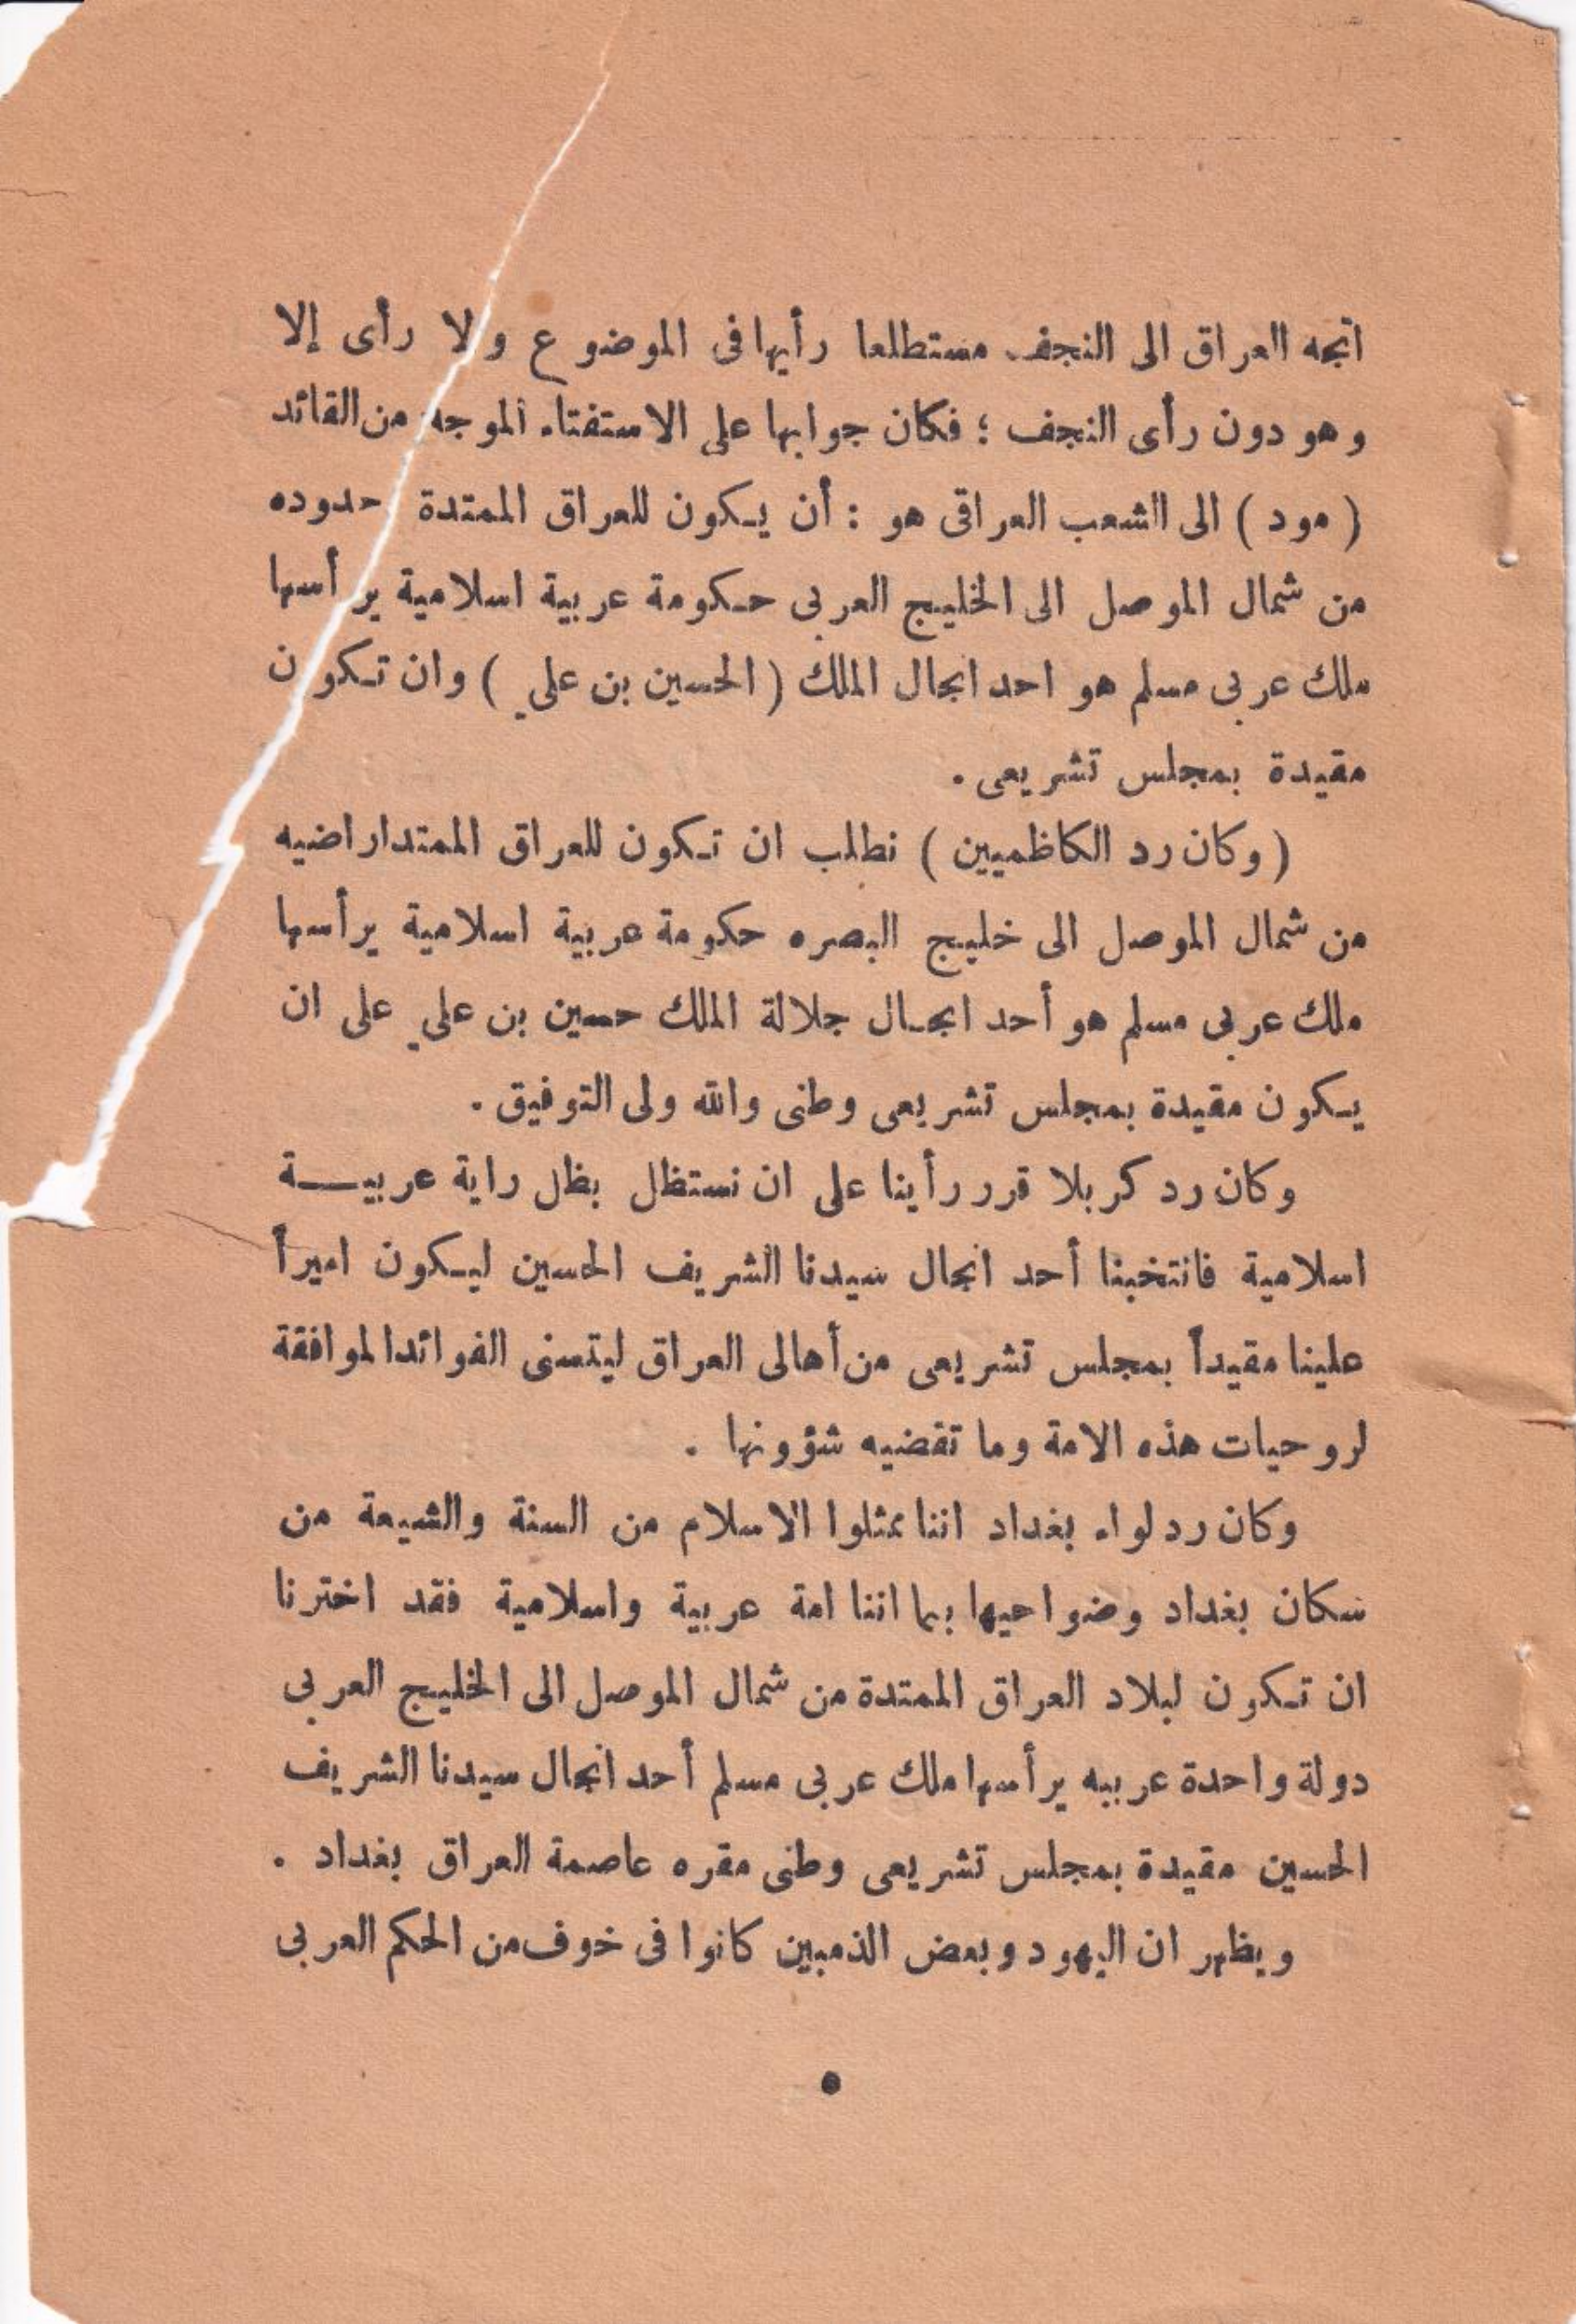 اتجه العراق الى النجف مستطلعا رأيها فى الموضوع ولا رأى إلا
وهو دون رأى النجف ؛ فكان جوابها على الاستفتاء الموجه من القائد
( مود ) الى الشعب العراقى هو : أن يكون للعراق الممتدة حدوده
من شمال الموصل الى الخليج العربى حكومة عربية اسلامية يرأسها
ملك عربى مسلم هو احد انجال الملك ( الحسين بن علي ) وان تكون
مقيدة بمجلس تشريعى .
( وكان رد الكاظميين ) نطلب ان تكون للعراق الممتداراضيه
من شمال الموصل الى خليج البصره حكومة عربية اسلامية يرأسها
ملك عربى مسلم هو أحد انجال جلالة الملك حسين بن علي على ان
يكون مقيدة بمجلس تشريعى وطنى والله ولى التوفيق .
وكان رد كربلا قرر رأينا على ان نستظل بظل راية عربيــة
اسلامية فانتخبنا أحد انجال سيدنا الشريف الحسين ليكون اميراً
علينا مقيداً بمجلس تشريعى من أهالى العراق ليتسنى الفوائدالموافقة
لروحيات هذه الامة وما تقضيه شؤونها .
وكان رد لواء بغداد اننا ممثلوا الاسلام من السنة والشيعة من
سكان بغداد وضواحيها بما اننا امة عربية واسلامية فقد اخترنا
ان تكون لبلاد العراق الممتدة من شمال الموصل الى الخليج العربى
دولة واحدة عربيه يرأسها ملك عربى مسلم أحد انجال سيدنا الشريف
الحسين مقيدة بمجلس تشريعى وطنى مقره عاصمة العراق بغداد .
ويظهر ان اليهود وبعض الذميين كانوا فى خوف من الحكم العربى
٥